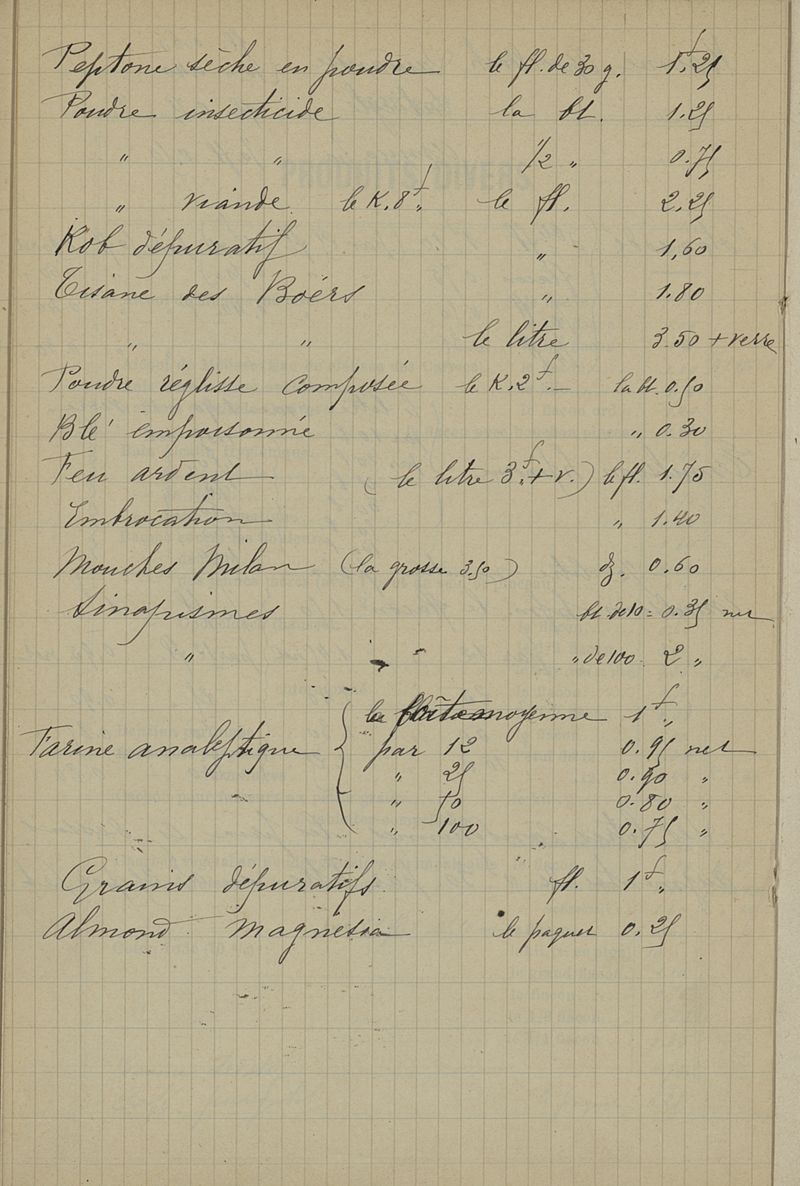 Peptone sèche en poudre le fl. de 30 g. 1f.25
Poudre insecticide la bt. 1.25
" " 1/2 " 0.75
" viande le K. 8f" le fl. 2.25
Rob dépuratif " 1,60
Tisane des Boërs " 1.80
" " le litre 3.50 + verre
Poudre réglisse composée le K. 2f.— la bt. 0.50
Blé empoisonné " 0.30
Feu ardent (le litre 3f. + v.) le fl. 1.75
Embrocation " 1.40
Mouches Milan (la grosse 3.50) dz. 0.60
Sinapismes bt. de 10 = 0.35 net
" " de 100 2 "
la boîte moyenne 1f"
Farine analeptique par 12 0.95 net
" 25 0.90 "
" 50 0.80 "
" 100 0.75 "
Grains dépuratifs fl. 1f"
Almond Magnesia le paquet 0.25